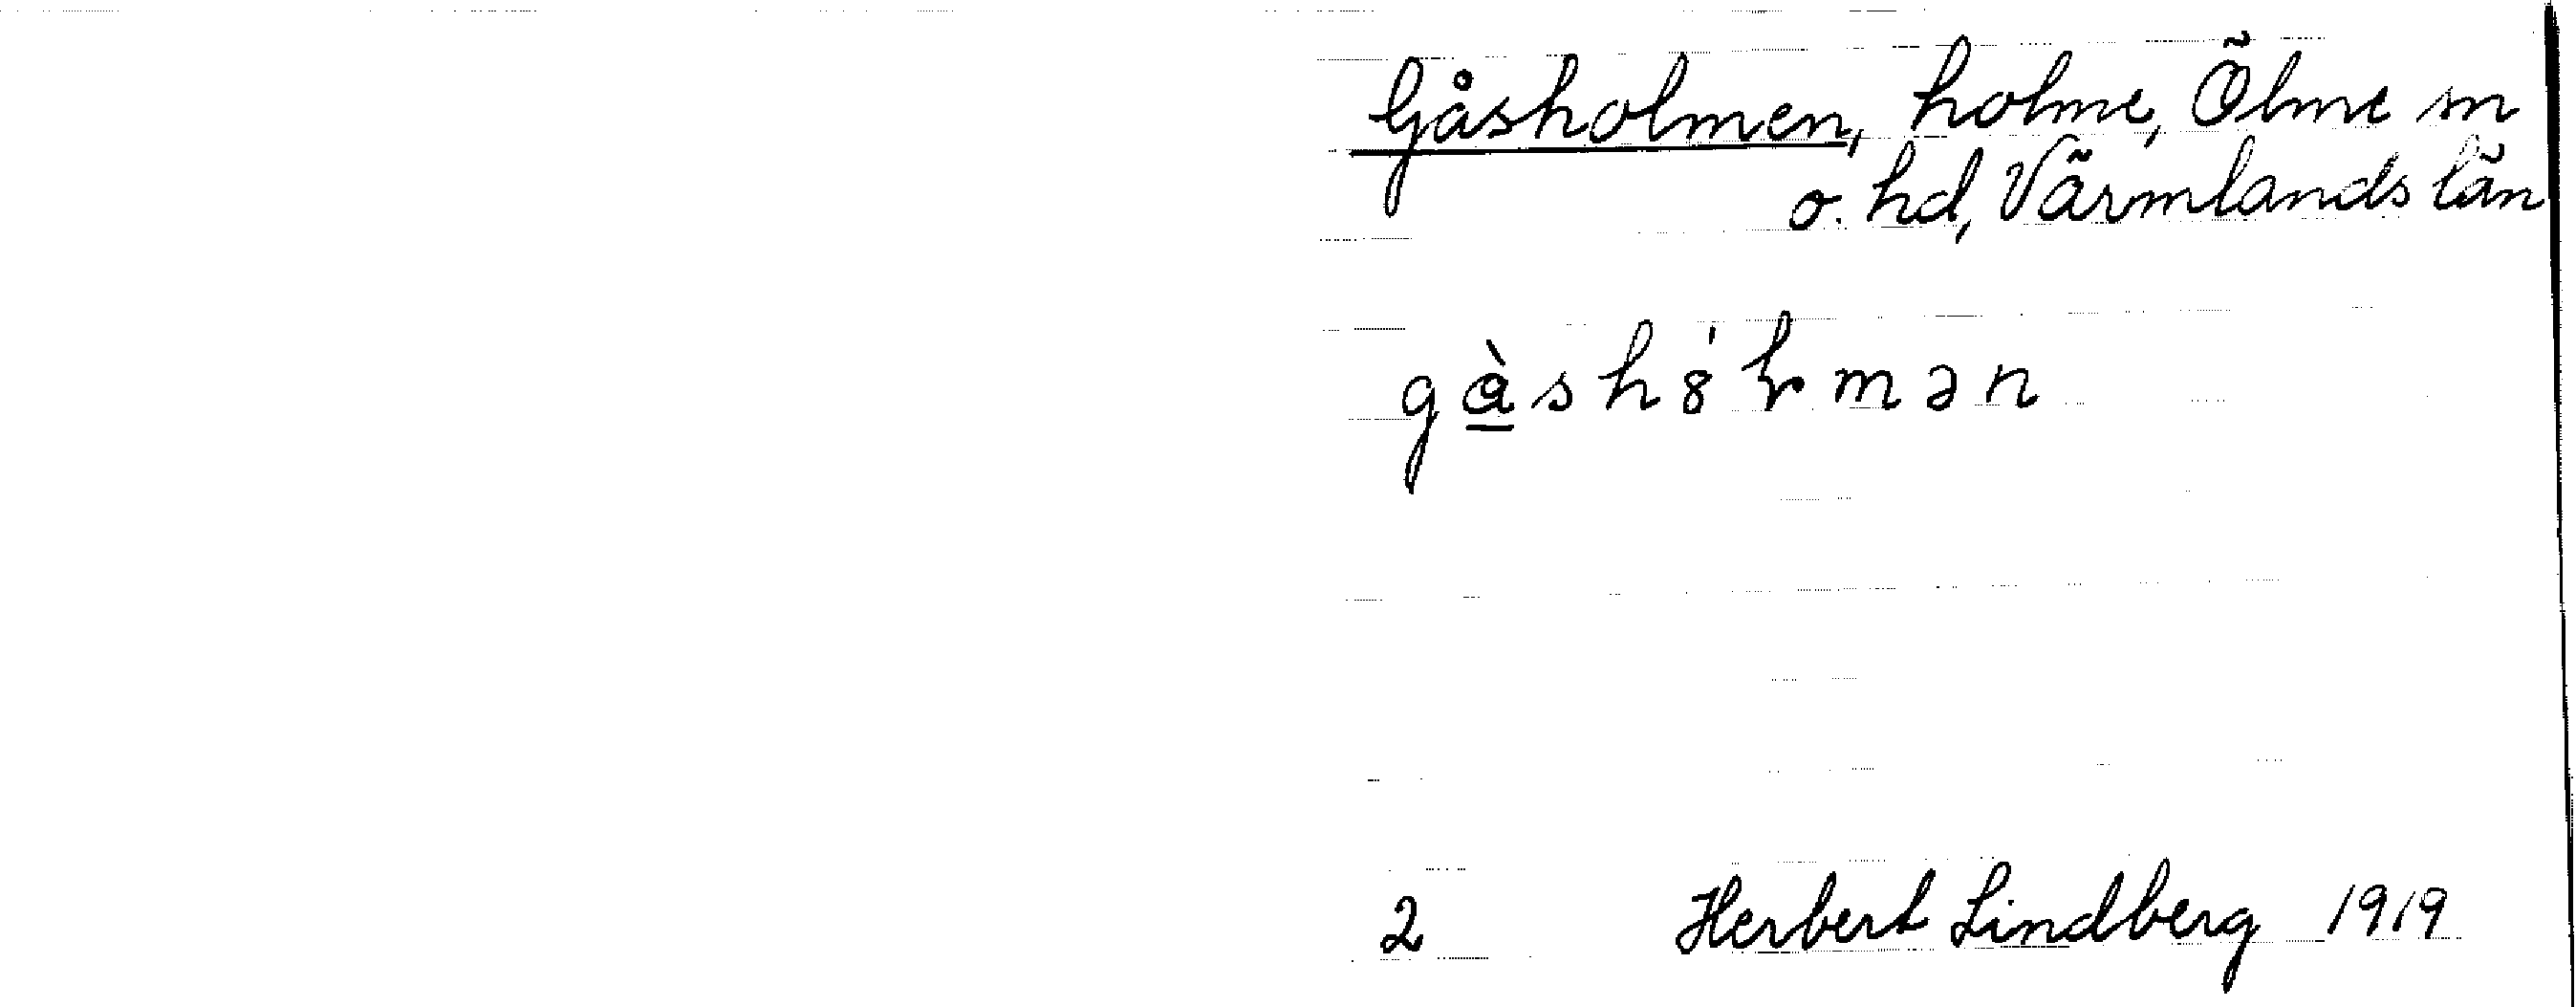 Gåsholmen, holme, Ölme sn
o. hd, Värmlands län
2 Herbert Lindberg 1919